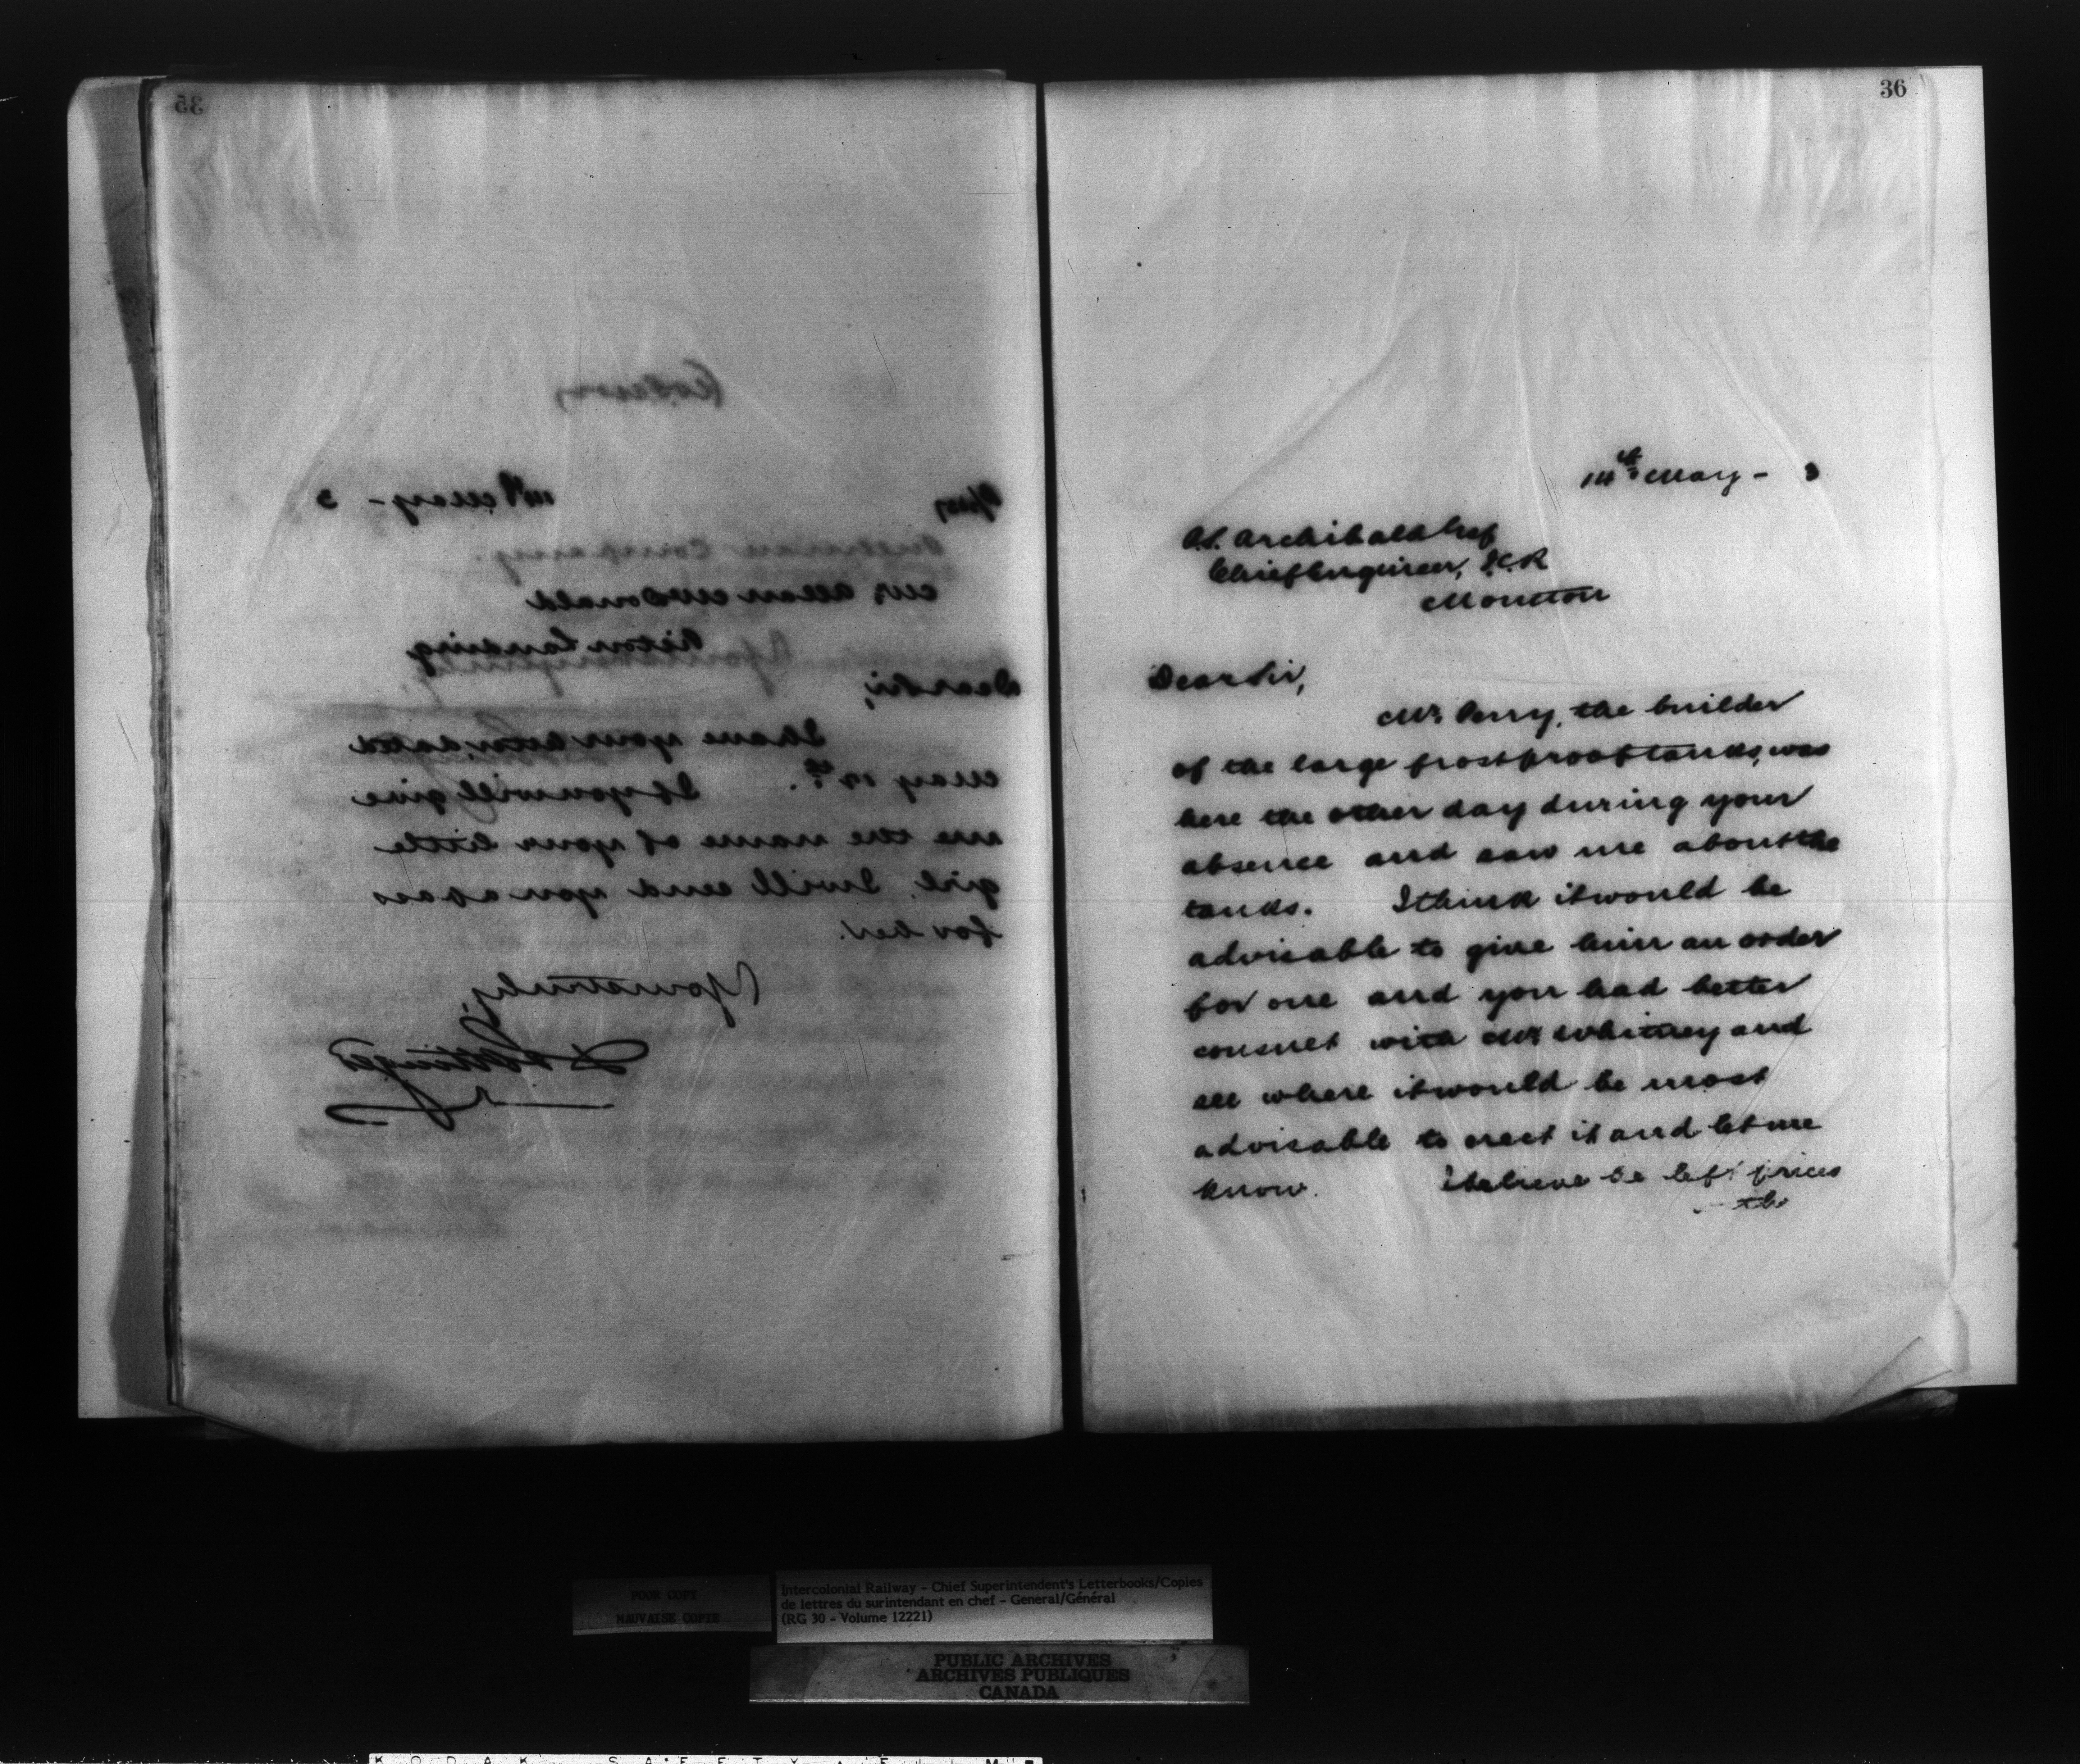 35
14th May - 3
Mr Allan McDonald
Picton Landing
Dear Sir,
I have your letter dated
May 12th. If you will give
me the name of your little
girl, I will send you a pass
for her.
Yours truly,
D Pottinger
36
14th May - 3
P.S. Archibald Esq
Chief Engineer, I.C.R
Moncton
Dear Sir,
Mr. Perry, the builder
of the large frost proof tanks, was
here the other day during your
absence and saw me about the
tanks. I think it would be
advisable to give him an order
for one and you had better
consult with Mr Whitney and
see where it would be most
advisable to erect it and let me
know. I believe he left prices
the
POOR COPY
MAUVAISE COPIE
Intercolonial Railway - Chief Superintendent's Letterbooks/Copies
de lettres du surintendant en chef - General/Général
(RG 30 - Volume 12221)
PUBLIC ARCHIVES
ARCHIVES PUBLIQUES
CANADA